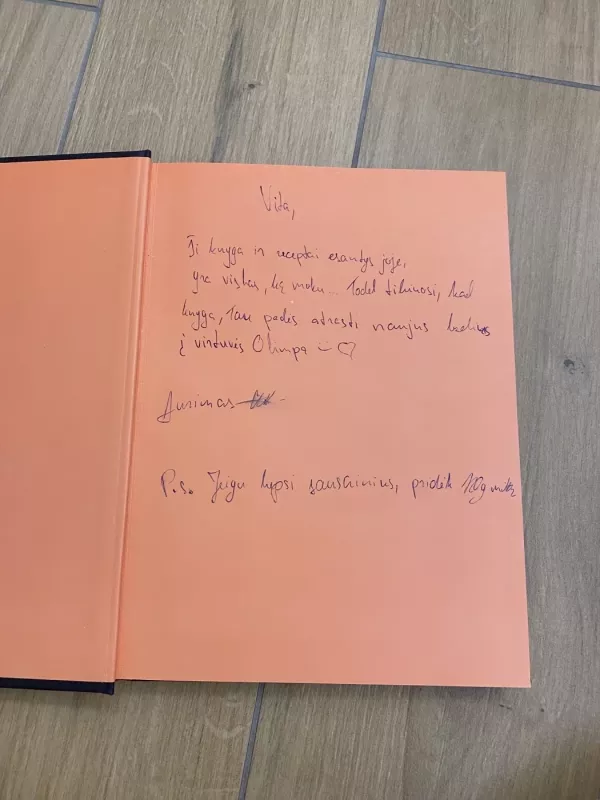 Vita,
Ši knyga ir receptai esantys joje,
yra viskas, ką moku... Todėl tikiuosi, kad
knyga, Tau padės atrasti naujus kelius
į virtuvės Olimpą :) ♡
Aurimas
P.s. Jeigu kepsi sausainius, pridėk 10g miltų